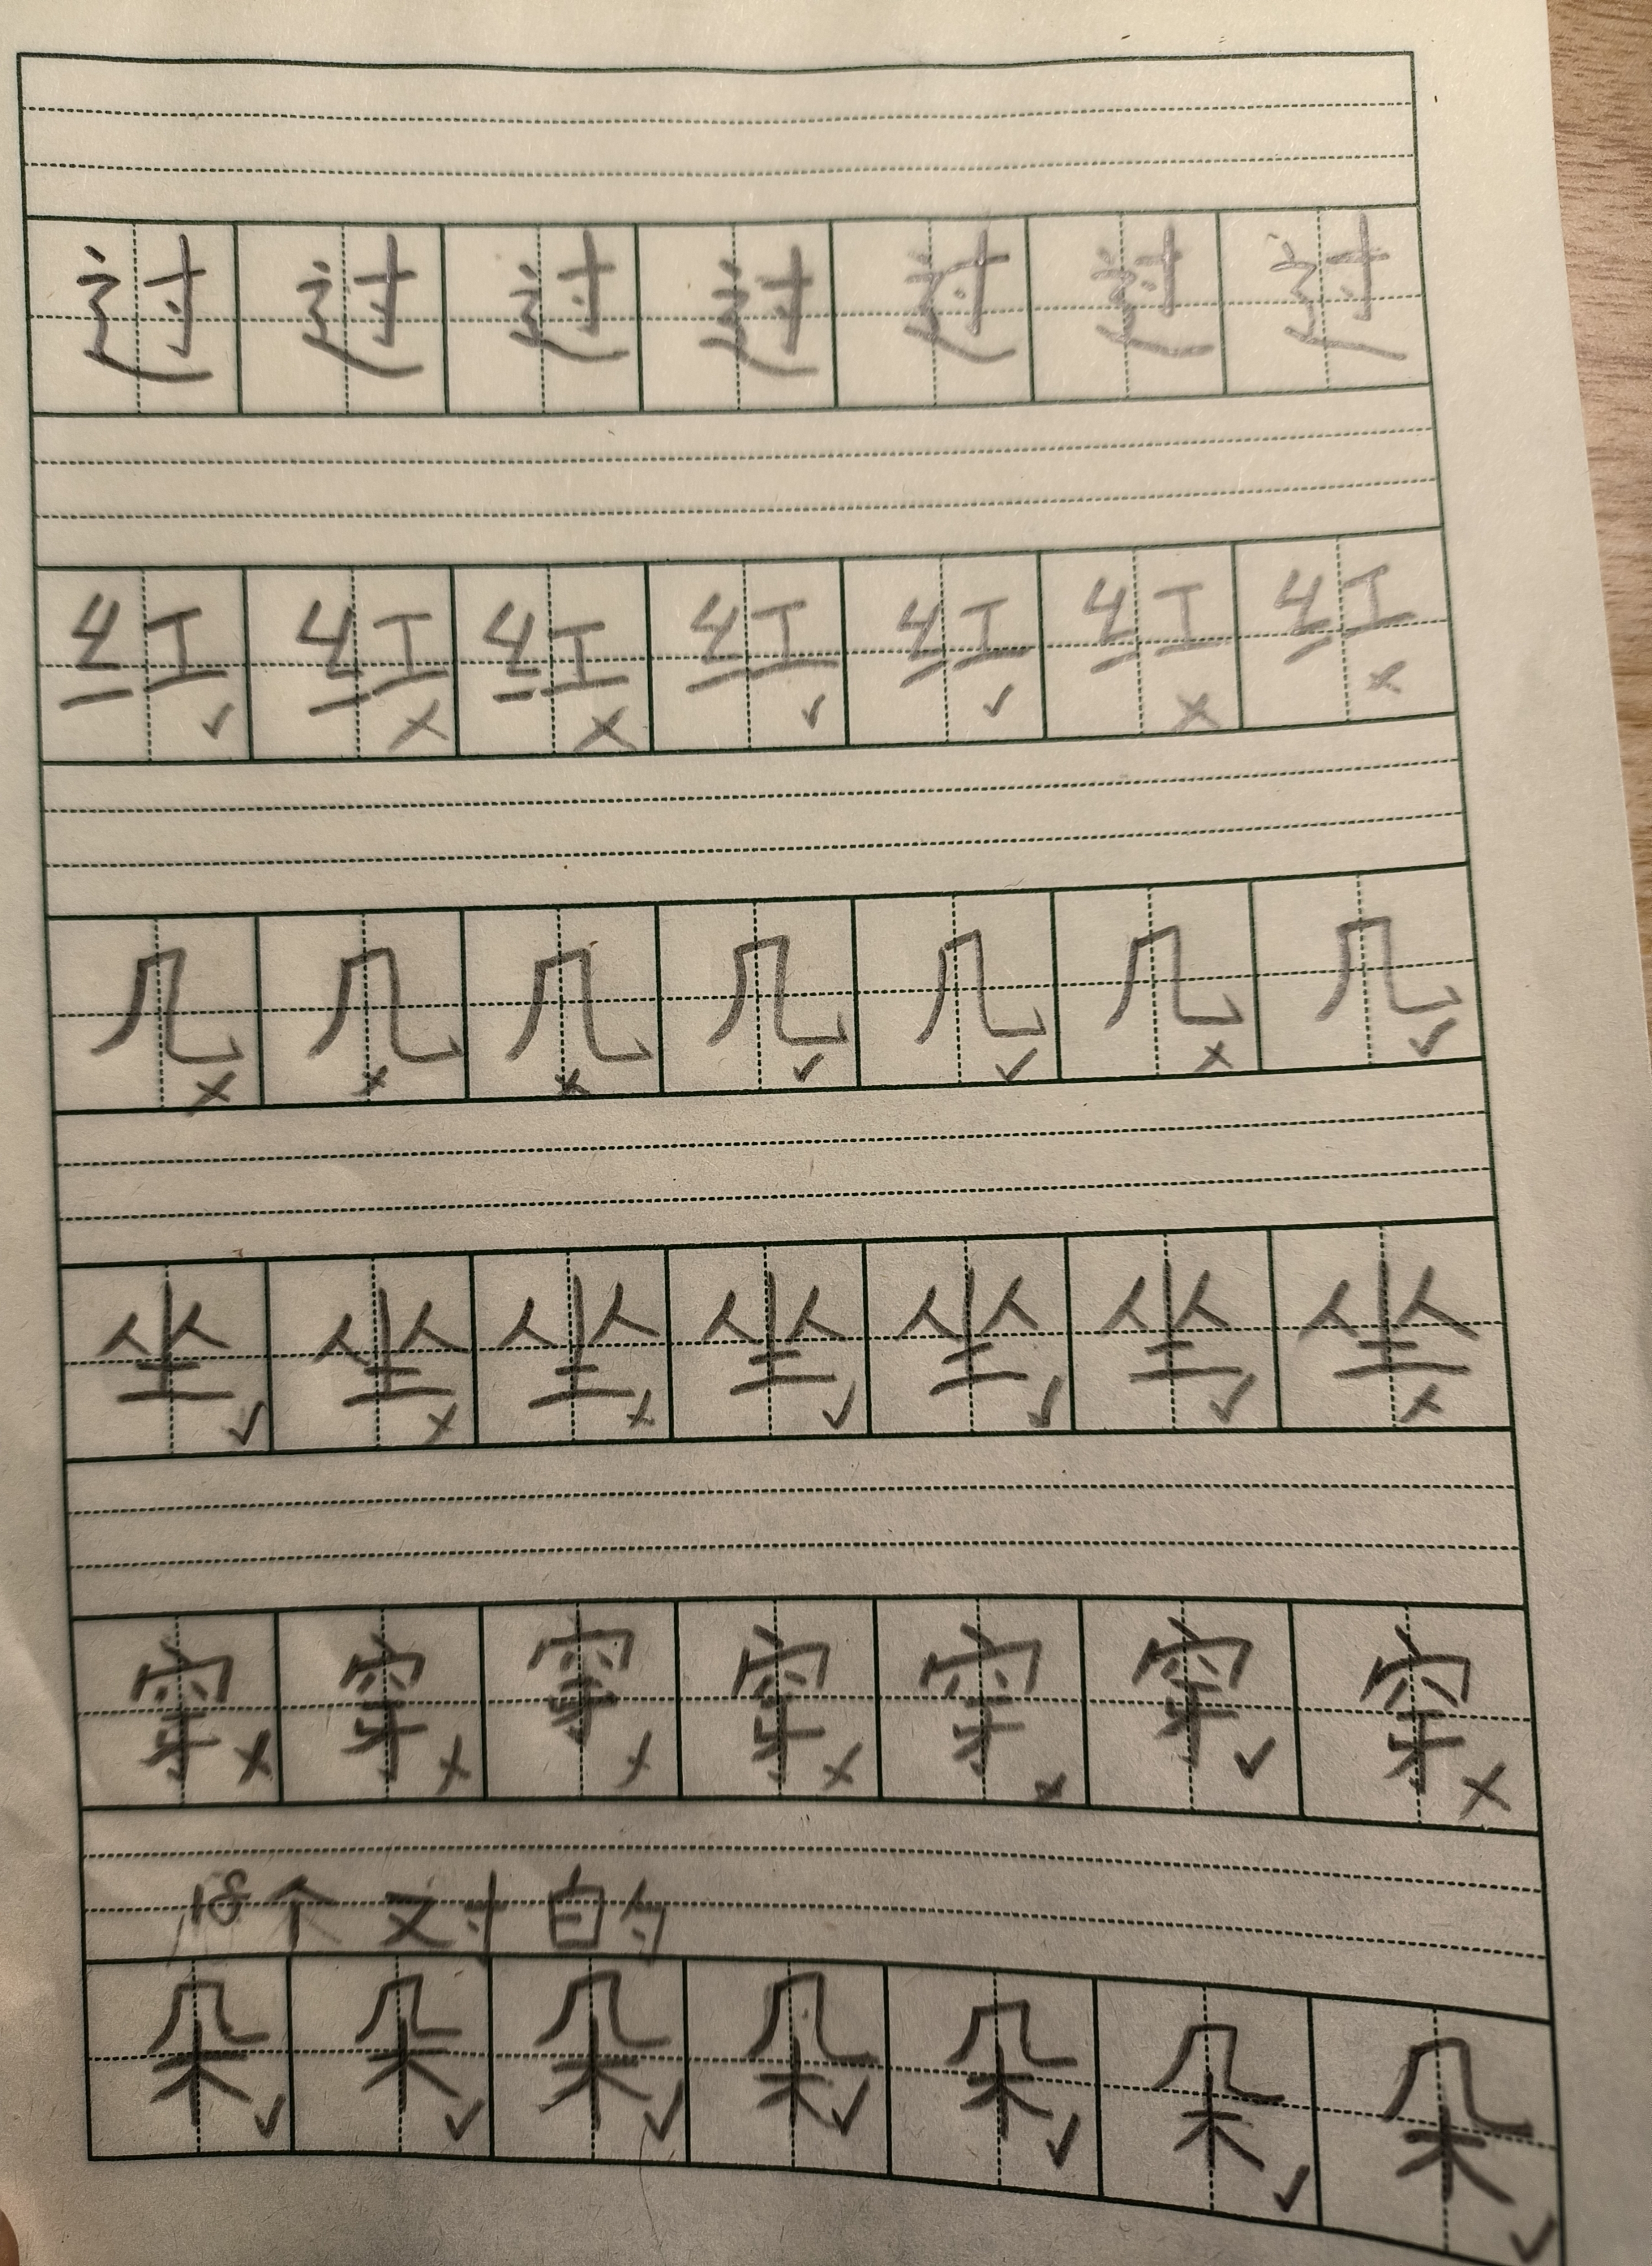 过 过 过 过 过 过 过
红 红 红 红 红 红 红
✓ × × ✓ ✓ × ×
几 几 几 几 几 几 几
× × × ✓ ✓ × ✓
坐 坐 坐 坐 坐 坐 坐
✓ × × ✓ ✓ ✓ ×
穿 穿 穿 穿 穿 穿 穿
× × × × × ✓ ×
18个对的
朵 朵 朵 朵 朵 朵 朵
✓ ✓ ✓ ✓ ✓ ✓ ✓